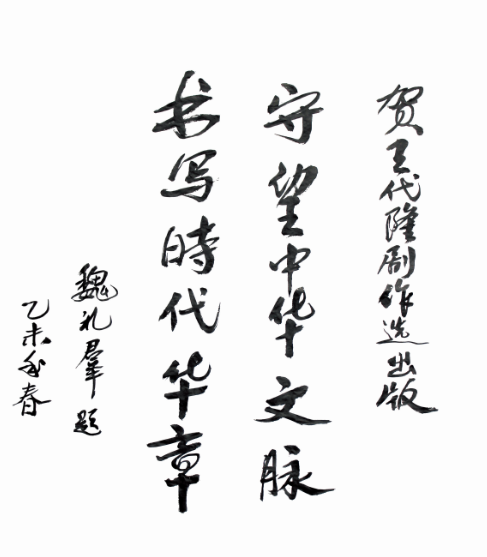 贺王代隆剧作选出版
守望中华文脉
书写時代华章
魏礼羣题
乙未春